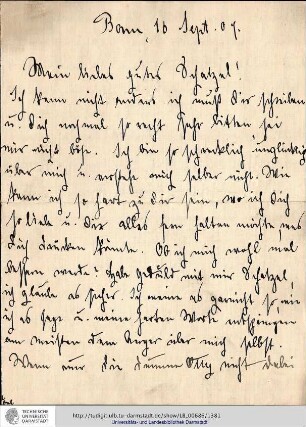 Bonn, 10 Sept. 07.
Mein liebes gutes Schatzel!
Ich kann nicht anders ich muß Dir schreiben
u. Dich nochmal so recht sehr bitten, sei
mir nicht böse. Ich bin so schrecklich unglücklich
über mich u. verstehe mich selber nicht. Wie
kann ich so hart zu Dir sein, wo ich Dich
so liebe u. Dir alles sein möchte was
Dich könnte. Ob ich mich wohl mal
bessern werde? Habe Geduld mit mir Schatzel,
ich glaube es sicher. Ich meine es garnicht so, wie
ich es sage u. meine harten Worte entspringen
am meisten dem Ärger über mich selbst.
Wenn nur die dumme nicht dabei
TECHNISCHE
UNIVERSITÄT
DARMSTADT
http://tudigit.ulb.tu-darmstadt.de/show/
Universitäts- und Landesbibliothek Darmstadt